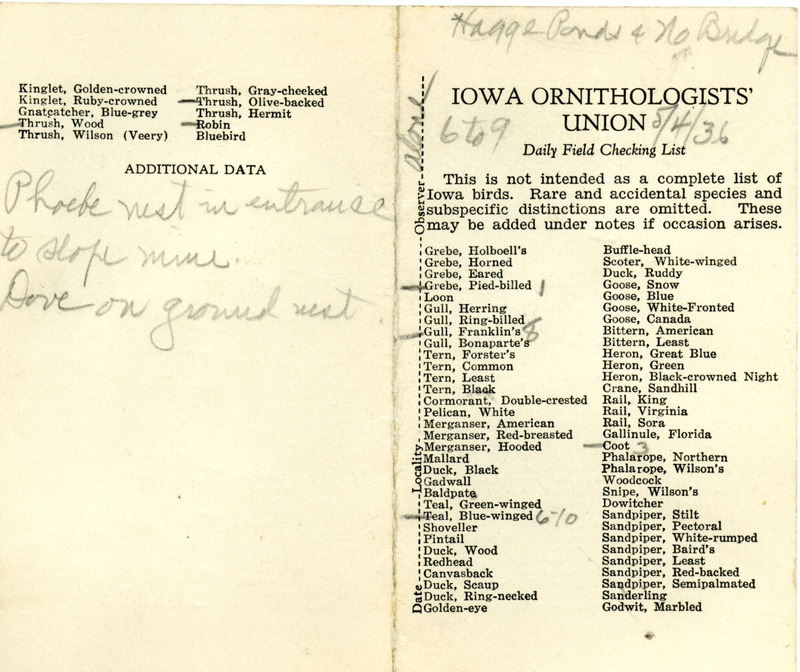 Kinglet, Golden-crowned
Kinglet, Ruby-crowned
Gnatcatcher, Blue-grey
Thrush, Wood
Thrush, Wilson (Veery)
Thrush, Gray-cheeked
Thrush, Olive-backed
Thrush, Hermit
Robin
Bluebird
ADDITIONAL DATA
Phoebe nest in entrance
to slope mine.
Dove on ground nest.
Hagge Ponds & No Bridge
IOWA ORNITHOLOGISTS'
UNION
5/4/36
6 to 9
alone
Daily Field Checking List
This is not intended as a complete list of
Iowa birds. Rare and accidental species and
subspecific distinctions are omitted. These
may be added under notes if occasion arises.
Date Locality Observer
Grebe, Holboell's
Grebe, Horned
Grebe, Eared
Grebe, Pied-billed 1
Loon
Gull, Herring
Gull, Ring-billed
Gull, Franklin's 8
Gull, Bonaparte's
Tern, Forster's
Tern, Common
Tern, Least
Tern, Black
Cormorant, Double-crested
Pelican, White
Merganser, American
Merganser, Red-breasted
Merganser, Hooded
Mallard
Duck, Black
Gadwall
Baldpate
Teal, Green-winged
Teal, Blue-winged 6-10
Shoveller
Pintail
Duck, Wood
Redhead
Canvasback
Duck, Scaup
Duck, Ring-necked
Golden-eye
Buffle-head
Scoter, White-winged
Duck, Ruddy
Goose, Snow
Goose, Blue
Goose, White-Fronted
Goose, Canada
Bittern, American
Bittern, Least
Heron, Great Blue
Heron, Green
Heron, Black-crowned Night
Crane, Sandhill
Rail, King
Rail, Virginia
Rail, Sora
Gallinule, Florida
Coot 3
Phalarope, Northern
Phalarope, Wilson's
Woodcock
Snipe, Wilson's
Dowitcher
Sandpiper, Stilt
Sandpiper, Pectoral
Sandpiper, White-rumped
Sandpiper, Baird's
Sandpiper, Least
Sandpiper, Red-backed
Sandpiper, Semipalmated
Sanderling
Godwit, Marbled